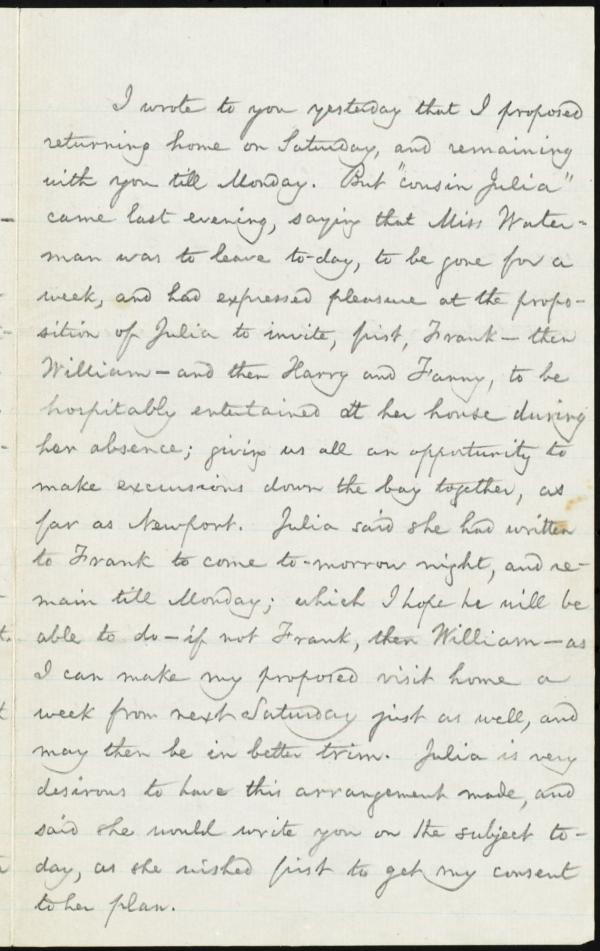 I wrote to you yesterday that I proposed
returning home on Saturday, and remaining
with you till Monday. But "cousin Julia"
came last evening, saying that Miss Water-
man was to leave to-day, to be gone for a
week, and had expressed pleasure at the propo-
sition of Julia to invite, first, Frank — then
William — and then Harry and Fanny, to be
hospitably entertained at her house during
her absence; giving us all an opportunity to
make excursions down the bay together, as
far as Newport. Julia said she had written
to Frank to come to-morrow night, and re-
main till Monday; which I hope he will be
able to do — if not Frank, then William — as
I can make my proposed visit home a
week from next Saturday just as well, and
may then be in better trim. Julia is very
desirous to have this arrangement made, and
said she would write you on the subject to-
day, as she wished first to get my consent
to her plan.